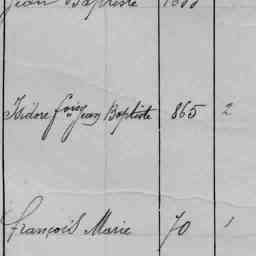 Jean Baptiste
Isidore fois Jean Baptiste 865 2
François Marie 70 1